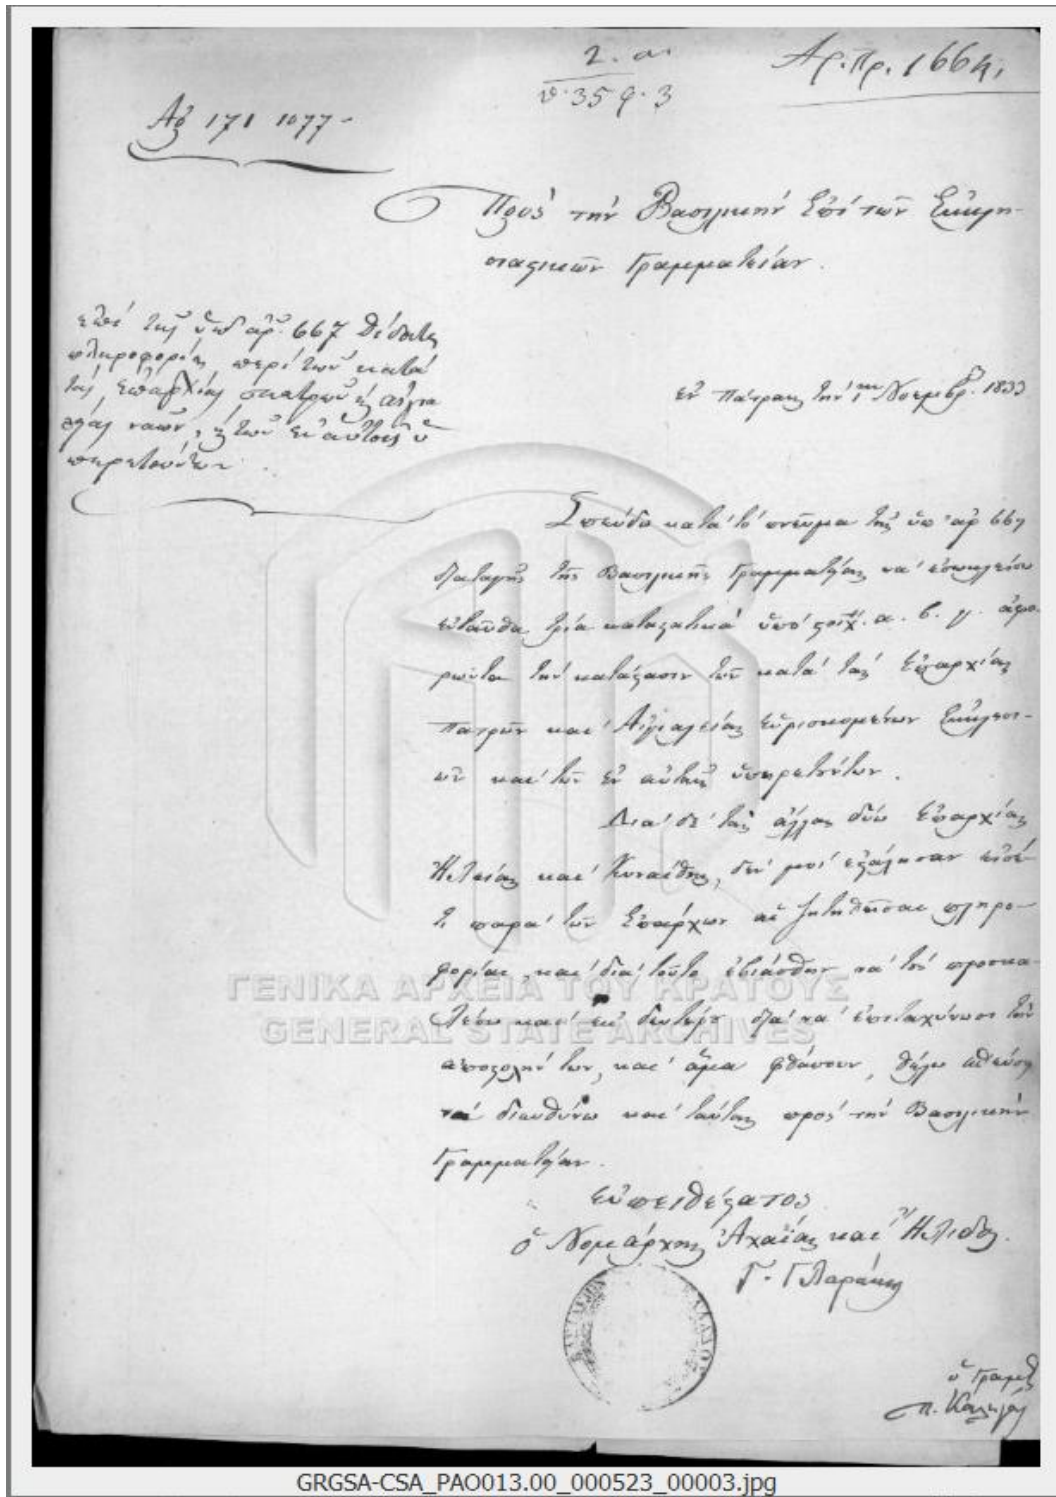 2. α.
θ. 35 φ. 3
Αρ. Πρ. 1664.
Αρ 171 1077 -
Πρὸς τὴν Βασιλικὴν Ἐπὶ τῶν Ἐκκλη-
σιαστικῶν Γραμματείαν.
ἐπὶ τῆς ὑπ' αρ. 667 δίδονται
πληροφορίαι περὶ τῶν κατὰ
τὰς ἐπαρχίας πατρῶν κ αἰγια
λείας ναῶν, κ τῶν ἐν αὐτοῖς ὑ
πηρετούντων.
ἐν Πάτραις τὴν Νοεμβρ. 1833
Σπεύδω κατὰ τὸ πνεῦμα τῆς ὑπ' αρ 667
διαταγῆς τῆς Βασιλικῆς Γραμματείας νὰ ἐσωκλείσω
ἐνταῦθα τρία καταστατικὰ ὑπὸ στοιχ. α. β. γ. ἀφο-
ρῶντα τὴν κατάστασιν τῶν κατὰ τὰς Ἐπαρχίας
Πατρῶν καὶ Αἰγιαλείας εὑρισκομένων Ἐκκλησι-
ῶν καὶ τῶν ἐν αὐταῖς ὑπηρετούντων.
Διὰ δὲ τὰς ἄλλας δύω Ἐπαρχίας
Ἠλείας καὶ Κυναίθης, δὲν μοὶ ἐστάλησαν εἰσέ-
τι παρὰ τῶν Ἐπάρχων αἱ ζητηθεῖσαι πληρο-
φορίαι, καὶ διὰ τοῦτο ἐβιάσθην νὰ τοὺς προσκα-
λέσω καὶ ἐκ δευτέρου διὰ νὰ ἐπιταχύνωσι τὴν
ἀποστολήν των, καὶ ἅμα φθάσουν, θέλω σπεύσῃ
νὰ διευθύνω καὶ ταύτας πρὸς τὴν Βασιλικὴν
Γραμματείαν.
εὐπειθέστατος
ὁ Νομάρχης Ἀχαΐας καὶ Ἤλιδος.
Γ. Γλαράκης
ὁ Γραμμ
ΓΕΝΙΚΑ ΑΡΧΕΙΑ ΤΟΥ ΚΡΑΤΟΥΣ
GENERAL STATE ARCHIVES
GRGSA-CSA_PAO013.00_000523_00003.jpg